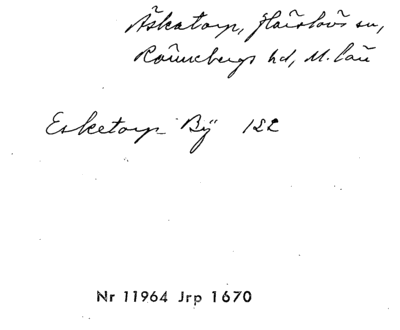 Äskatorp, Härslövs sn,
Rönnebergs hd, M. län
Esketorp Bÿ 122
Nr 11964 Jrp 1670